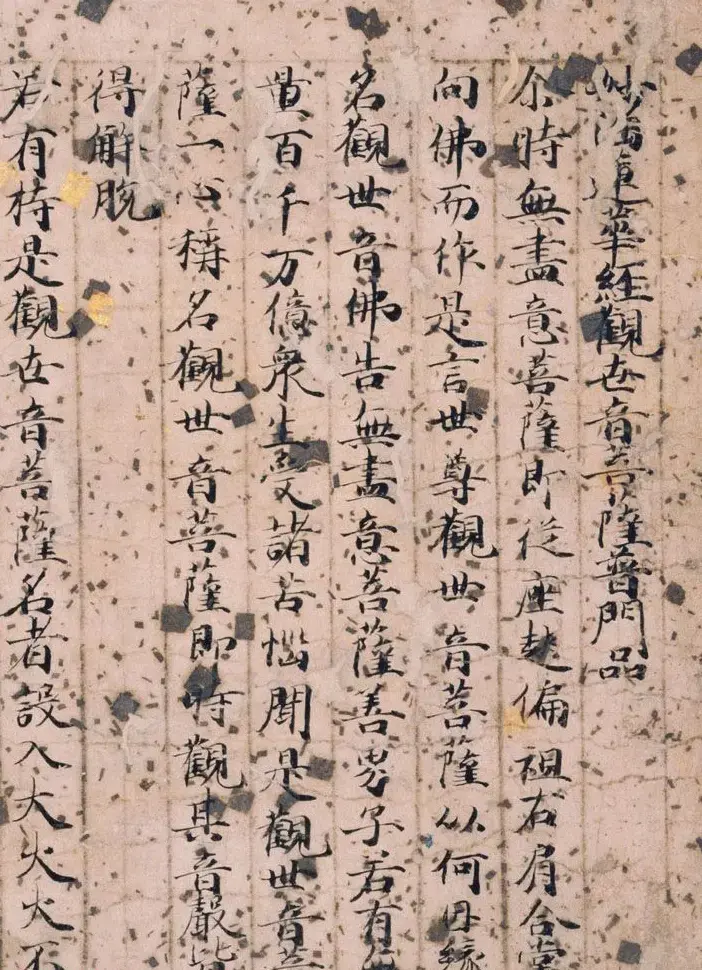 妙法蓮華經觀世音菩薩普門品
尒時無盡意菩薩即從座起偏袒右肩合掌
向佛而作是言世尊觀世音菩薩以何因緣
名觀世音佛告無盡意菩薩善男子若有無
量百千万億衆生受諸苦惱聞是觀世音菩
薩一心稱名觀世音菩薩即時觀其音嚴皆
得解脫
若有持是觀世音菩薩名者設入大火火不